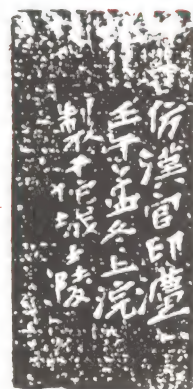 仿漢官印灋
壬午孟冬上浣
製于 城士陵